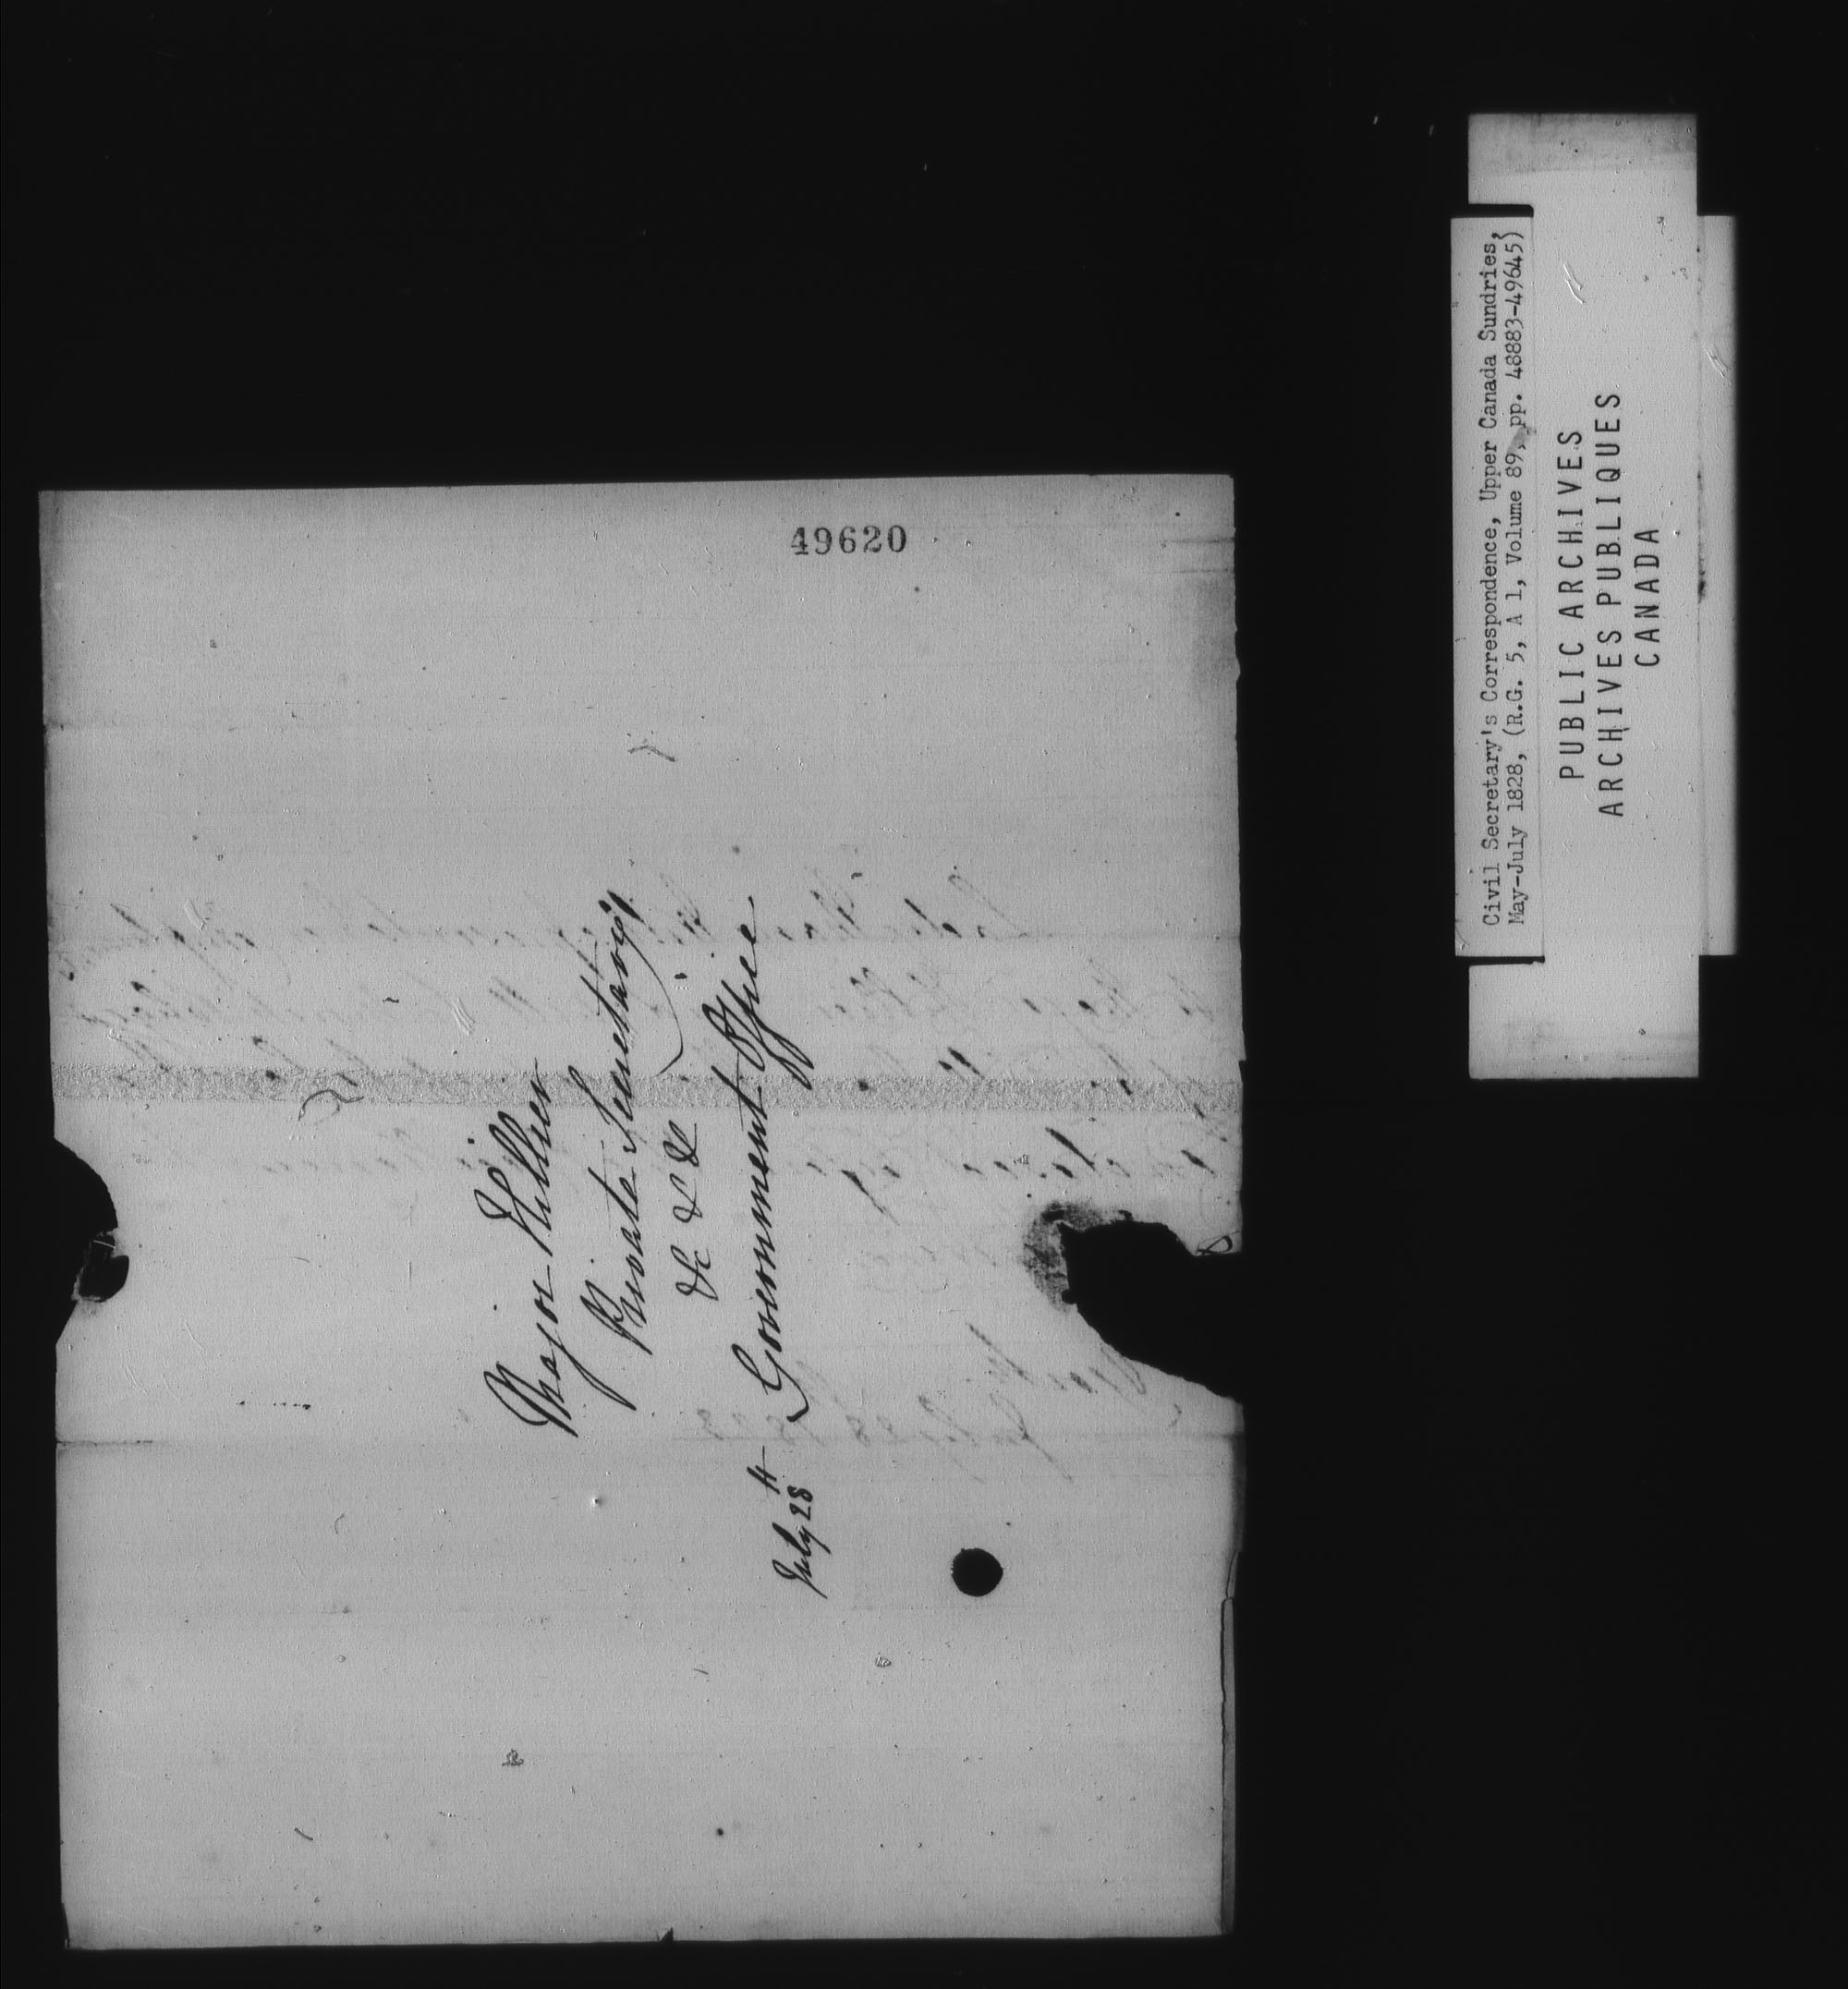 49620
Major Hillier
Private Secretary
&c &c &c
Government Office
July 28th
Civil Secretary's Correspondence, Upper Canada Sundries,
May-July 1828, (R.G. 5, A 1, Volume 89, pp. 48883-49645)
PUBLIC ARCHIVES
ARCHIVES PUBLIQUES
CANADA